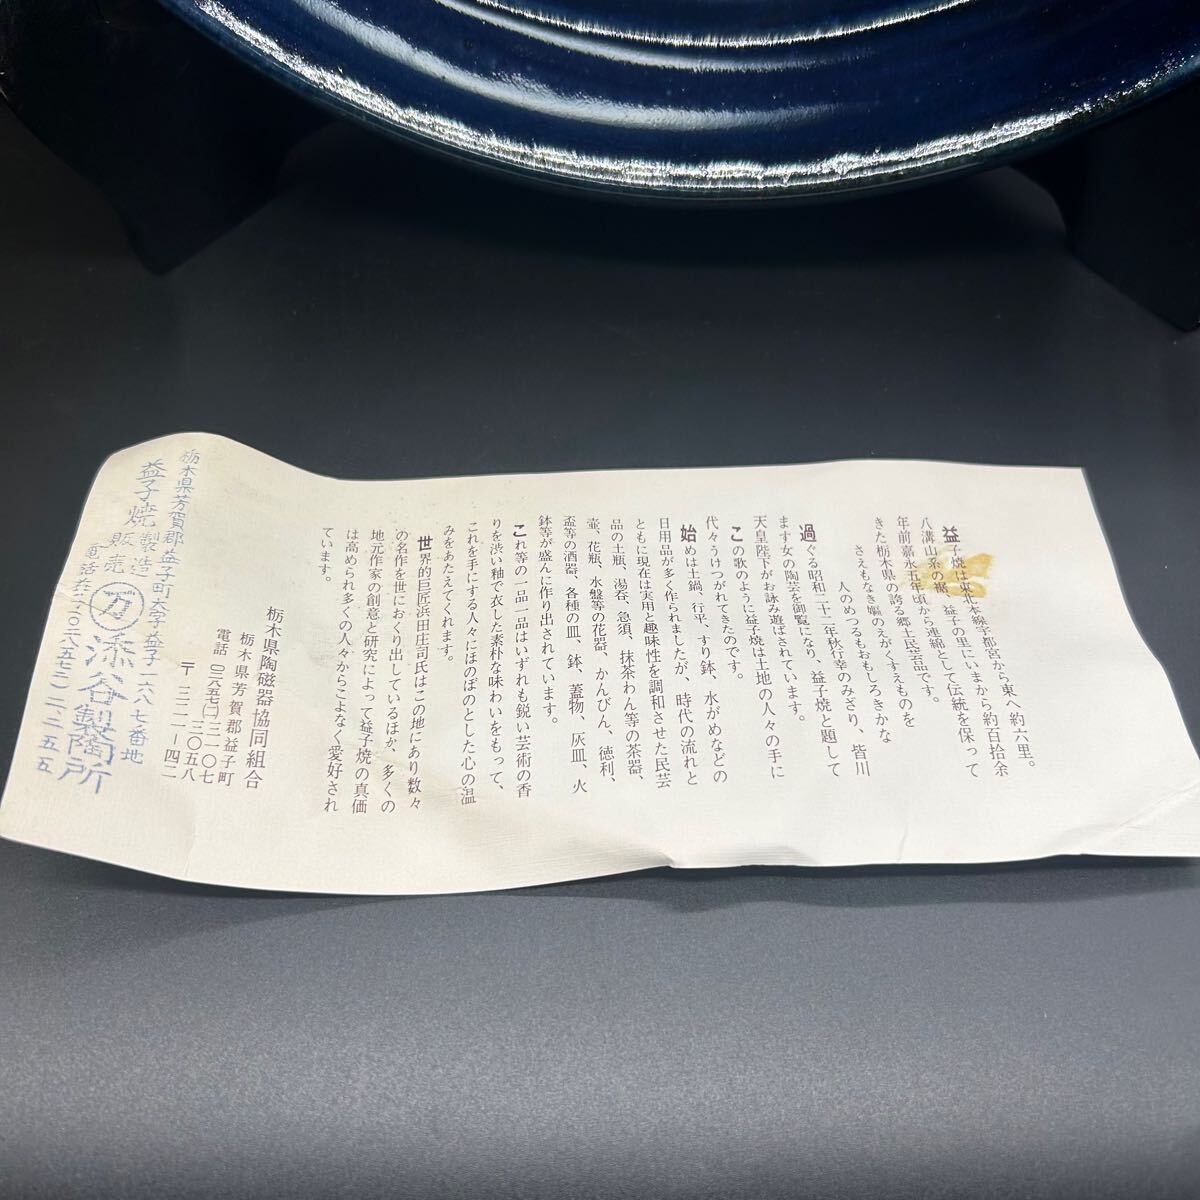 益子焼は東北本線宇都宮から東へ約六里。
八溝山系の裾、益子の里にいまから約百拾余
年前嘉永五年頃から連綿として伝統を保って
きた栃木県の誇る郷土民芸品です。
さえもなき嫗のえがくすえものを
人のめつるもおもしろきかな
過ぐる昭和二十二年秋行幸のみぎり、皆川
ます女の陶芸を御覧になり、益子焼と題して
天皇陛下がお詠み遊ばされています。
この歌のように益子焼は土地の人々の手に
代々うけつがれてきたのです。
始めは土鍋、行平、すり鉢、水がめなどの
日用品が多く作られましたが、時代の流れと
ともに現在は実用と趣味性を調和させた民芸
品の土瓶、湯呑、急須、抹茶わん等の茶器、
壷、花瓶、水盤等の花器、かんびん、徳利、
盃等の酒器、各種の皿、鉢、蓋物、灰皿、火
鉢等が盛んに作り出されています。
これ等の一品一品はいずれも鋭い芸術の香
りを渋い釉で衣した素朴な味わいをもって、
これを手にする人々にほのぼのとした心の温
みをあたえてくれます。
世界的巨匠浜田庄司氏はこの地にあり数々
の名作を世におくり出しているほか、多くの
地元作家の創意と研究によって益子焼の真価
は高められ多くの人々からこよなく愛好され
ています。
栃木県陶磁器協同組合
栃木県芳賀郡益子町
電話 〇二八五七(二)三一〇七
三〇五八
〒 三二一−四二
栃木県芳賀郡益子町大字益子一六八七番地
益子焼製造販売 万 添谷製陶所
電話 〇二八五七(二)二二五五